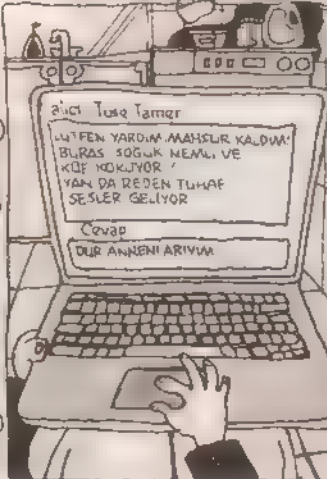 alıcı Tuse Tamer
LÜTFEN YARDIM MAHSUR KALDIM!
BURAS SOĞUK NEMLİ VE
KÜF KOKUYOR
YAN DA REDEN TUHAF
SESLER GELİYOR
Cevap
DUR ANNENİ ARIYIM